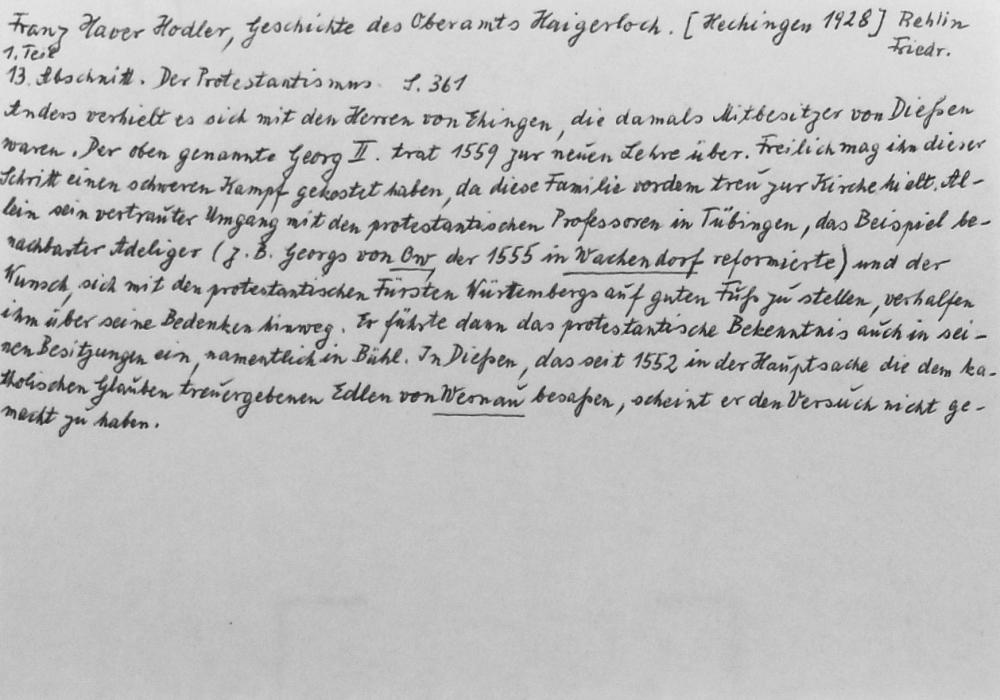 Franz Xaver Hodler, Geschichte des Oberamts Haigerloch. [Hechingen 1928] Rehlin
1. Teil Friedr.
13. Abschnitt. Der Protestantismus. S. 361
Anders verhielt es sich mit den Herren von Ehingen, die damals Mitbesitzer von Dießen
waren. Der oben genannte Georg II. trat 1559 zur neuen Lehre über. Freilich mag ihn dieser
Schritt einen schweren Kampf gekostet haben, da diese Familie vordem treu zur Kirche hielt. Al-
lein sein vertrauter Umgang mit den protestantischen Professoren in Tübingen, das Beispiel be-
nachbarter Adeliger (z. B. Georgs von Ow, der 1555 in Wachendorf reformierte) und der
Wunsch, sich mit den protestantischen Fürsten Württembergs auf guten Fuß zu stellen, verhalfen
ihm über seine Bedenken hinweg. Er führte dann das protestantische Bekenntnis auch in sei-
nen Besitzungen ein, namentlich in Bühl. In Dießen, das seit 1552 in der Hauptsache die dem ka-
tholischen Glauben treuergebenen Edlen von Wernau besaßen, scheint er den Versuch nicht ge-
macht zu haben.